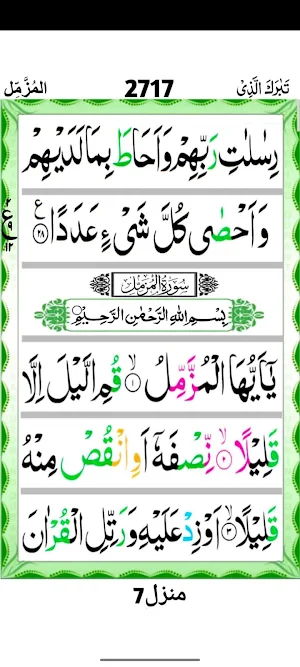 تَبٰرَكَ الَّذِیْ 2717 الْمُزَّمِّل
رِسٰلٰتِ رَبِّهِمْ وَاَحَاطَ بِمَا لَدَیْهِمْ
وَاَحْصٰی كُلَّ شَیْءٍ عَدَدًا ﴿۲۸﴾ ع
سُوْرَةُ الْمُزَّمِّل
بِسْمِ اللّٰهِ الرَّحْمٰنِ الرَّحِیْمِ
یٰۤاَیُّهَا الْمُزَّمِّلُ ﴿۱﴾ قُمِ الَّیْلَ اِلَّا
قَلِیْلًا ﴿۲﴾ نِّصْفَهٗۤ اَوِ انْقُصْ مِنْهُ
قَلِیْلًا ﴿۳﴾ اَوْ زِدْ عَلَیْهِ وَرَتِّلِ الْقُرْاٰنَ
منزل 7